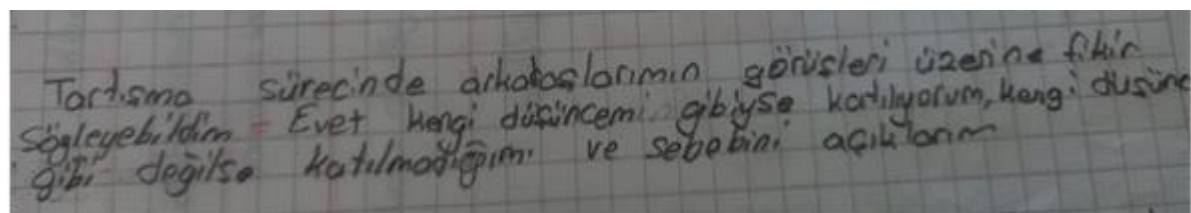 Tartışma sürecinde arkadaşlarımın görüşleri üzerine fikir
söyleyebildim = Evet kengi düşüncemi gibiyse katılıyorum, kengi düşünc
gibi değilse katılmadığımı ve sebebini açıklarım